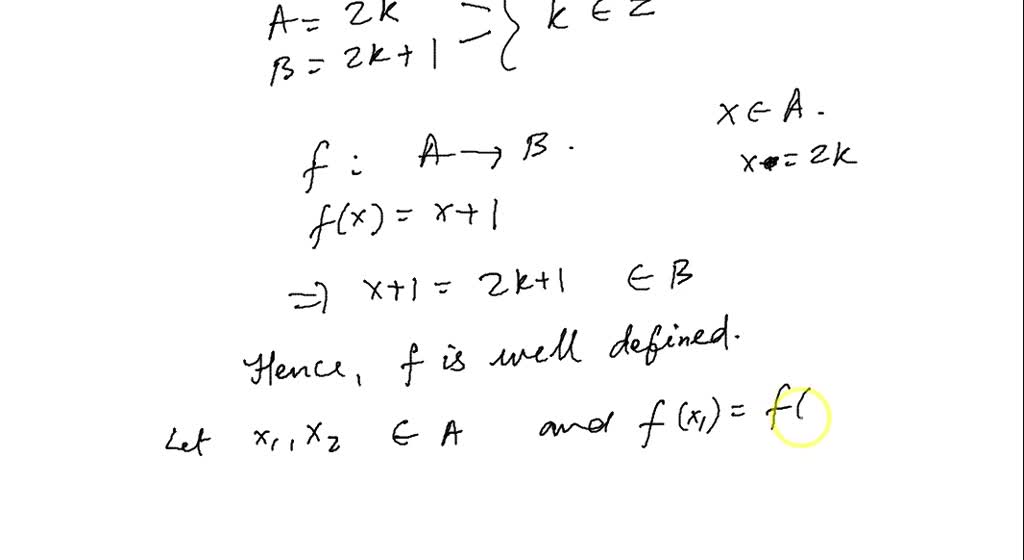 A = 2k
B = 2k+1 } k ∈ Z
x ∈ A.
x = 2k
f : A → B.
f(x) = x+1
⇒ x+1 = 2k+1 ∈ B
Hence, f is well defined.
Let x₁, x₂ ∈ A and f(x₁) = f(